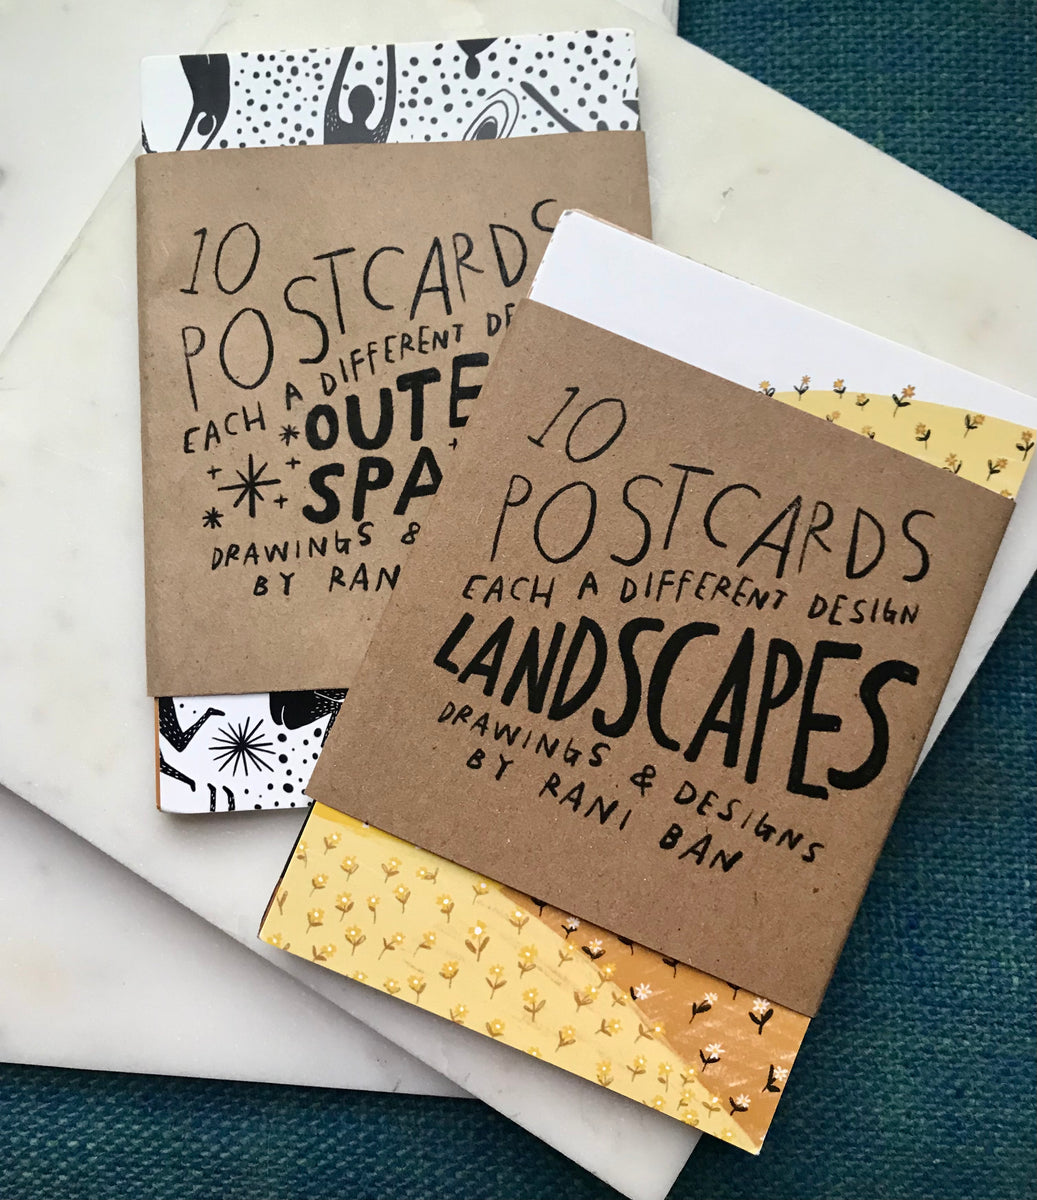 10
POSTCARDS
EACH A DIFFERENT DE
OUTE
SPA
DRAWINGS &
BY RAN
10
POSTCARDS
EACH A DIFFERENT DESIGN
LANDSCAPES
DRAWINGS & DESIGNS
BY RANI BAN